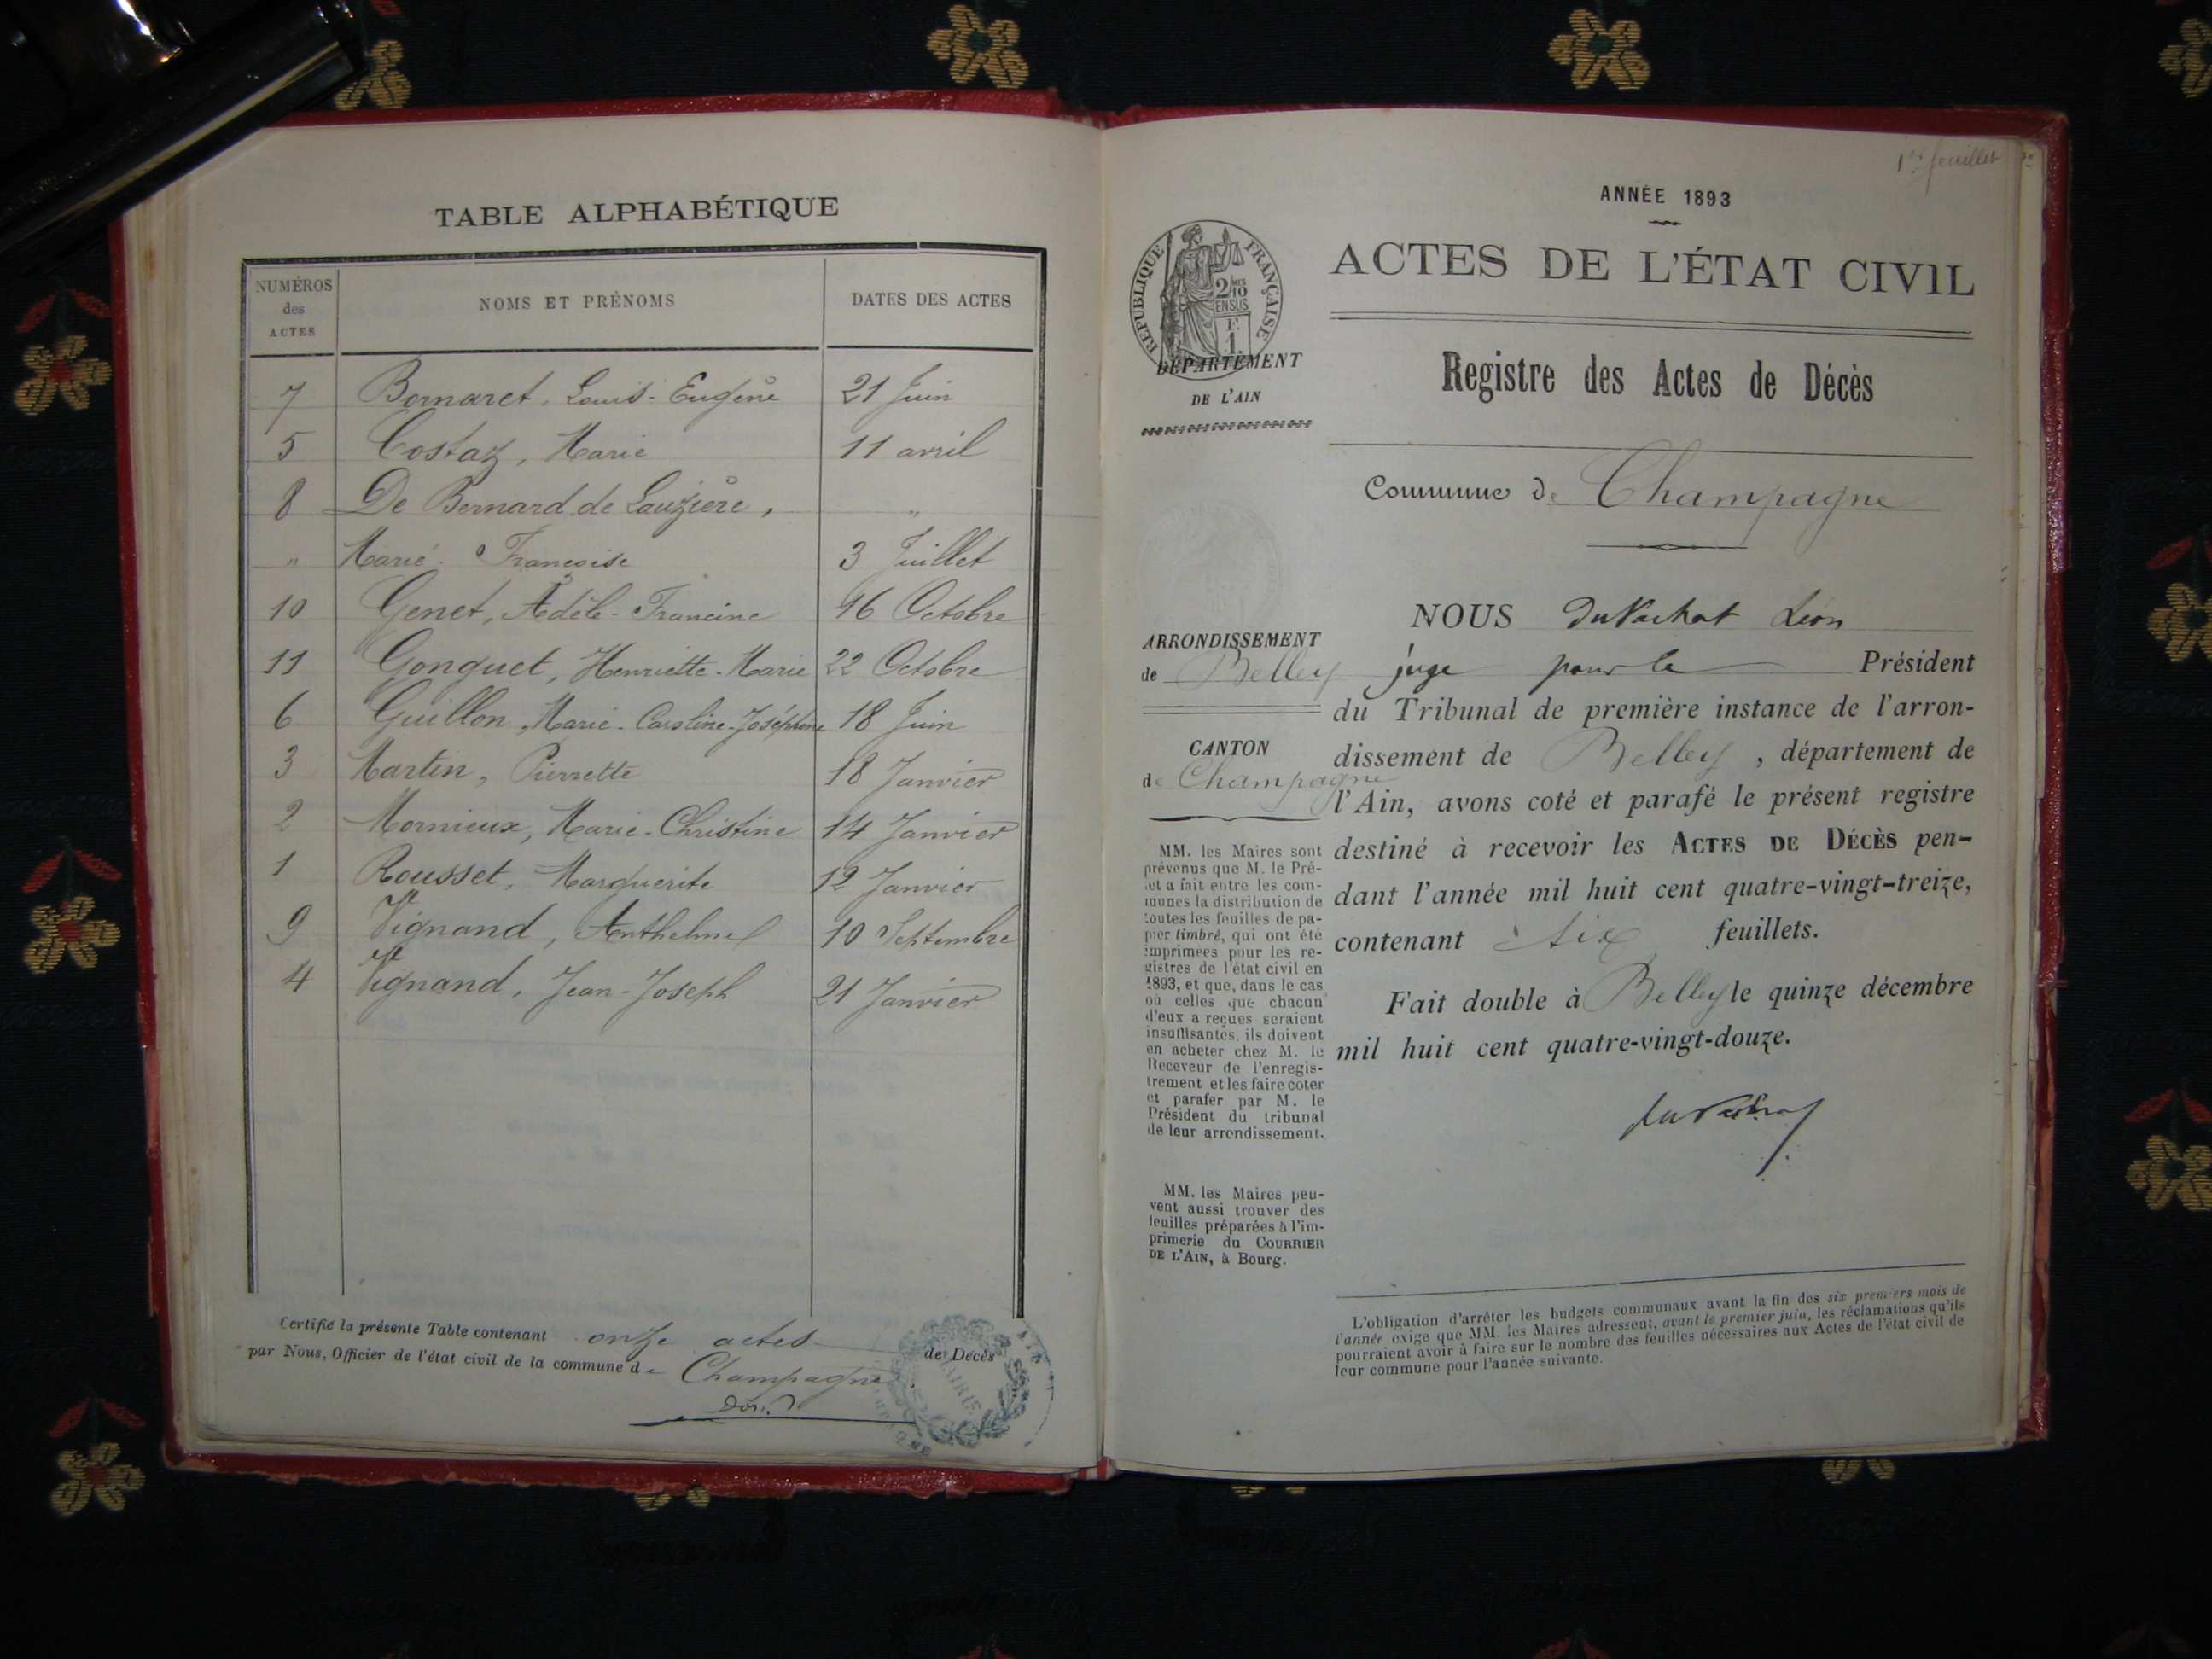 TABLE ALPHABÉTIQUE
NUMÉROS des ACTES NOMS ET PRÉNOMS DATES DES ACTES
7 Bornaret, Louis-Eugène 21 Juin
5 Costaz, Marie 11 avril
8 De Bernard de Lauzière, "
" Marie Françoise 3 Juillet
10 Genet, Adèle-Francine 16 Octobre
11 Gonguet, Henriette-Marie 22 Octobre
6 Guillon, Marie-Caroline-Joséphine 18 Juin
3 Martin, Pierrette 18 Janvier
2 Mornieux, Marie-Christine 14 Janvier
1 Rousset, Marguerite 12 Janvier
9 Vignand, Anthelme 10 Septembre
4 Vignand, Jean-Joseph 21 Janvier
Certifié la présente Table contenant onze actes de Décès
par Nous, Officier de l'état civil de la commune de Champagne
MAIRIE
1er feuillet
ANNÉE 1893
ACTES DE L'ÉTAT CIVIL
RÉPUBLIQUE FRANÇAISE
2/10 EN SUS
F.
1
DÉPARTEMENT
DE L'AIN
Registre des Actes de Décès
Commune de Champagne
ARRONDISSEMENT
de Belley
CANTON
de Champagne
MM. les Maires sont
prévenus que M. le Pré-
fet a fait entre les com-
munes la distribution de
toutes les feuilles de pa-
pier timbré, qui ont été
imprimées pour les re-
gistres de l'état civil en
1893, et que, dans le cas
où celles que chacun
d'eux a reçues seraient
insuffisantes, ils doivent
en acheter chez M. le
Receveur de l'enregis-
trement et les faire coter
et parafer par M. le
Président du tribunal
de leur arrondissement.
MM. les Maires peu-
vent aussi trouver des
feuilles préparées à l'im-
primerie du COURRIER
DE L'AIN, à Bourg.
NOUS Duvachat Léon
juge pour le Président
du Tribunal de première instance de l'arron-
dissement de Belley, département de
l'Ain, avons coté et parafé le présent registre
destiné à recevoir les ACTES DE DÉCÈS pen-
dant l'année mil huit cent quatre-vingt-treize,
contenant six feuillets.
Fait double à Belley le quinze décembre
mil huit cent quatre-vingt-douze.
L'obligation d'arrêter les budgets communaux avant la fin des six premiers mois de
l'année exige que MM. les Maires adressent, avant le premier juin, les réclamations qu'ils
pourraient avoir à faire sur le nombre des feuilles nécessaires aux Actes de l'état civil de
leur commune pour l'année suivante.